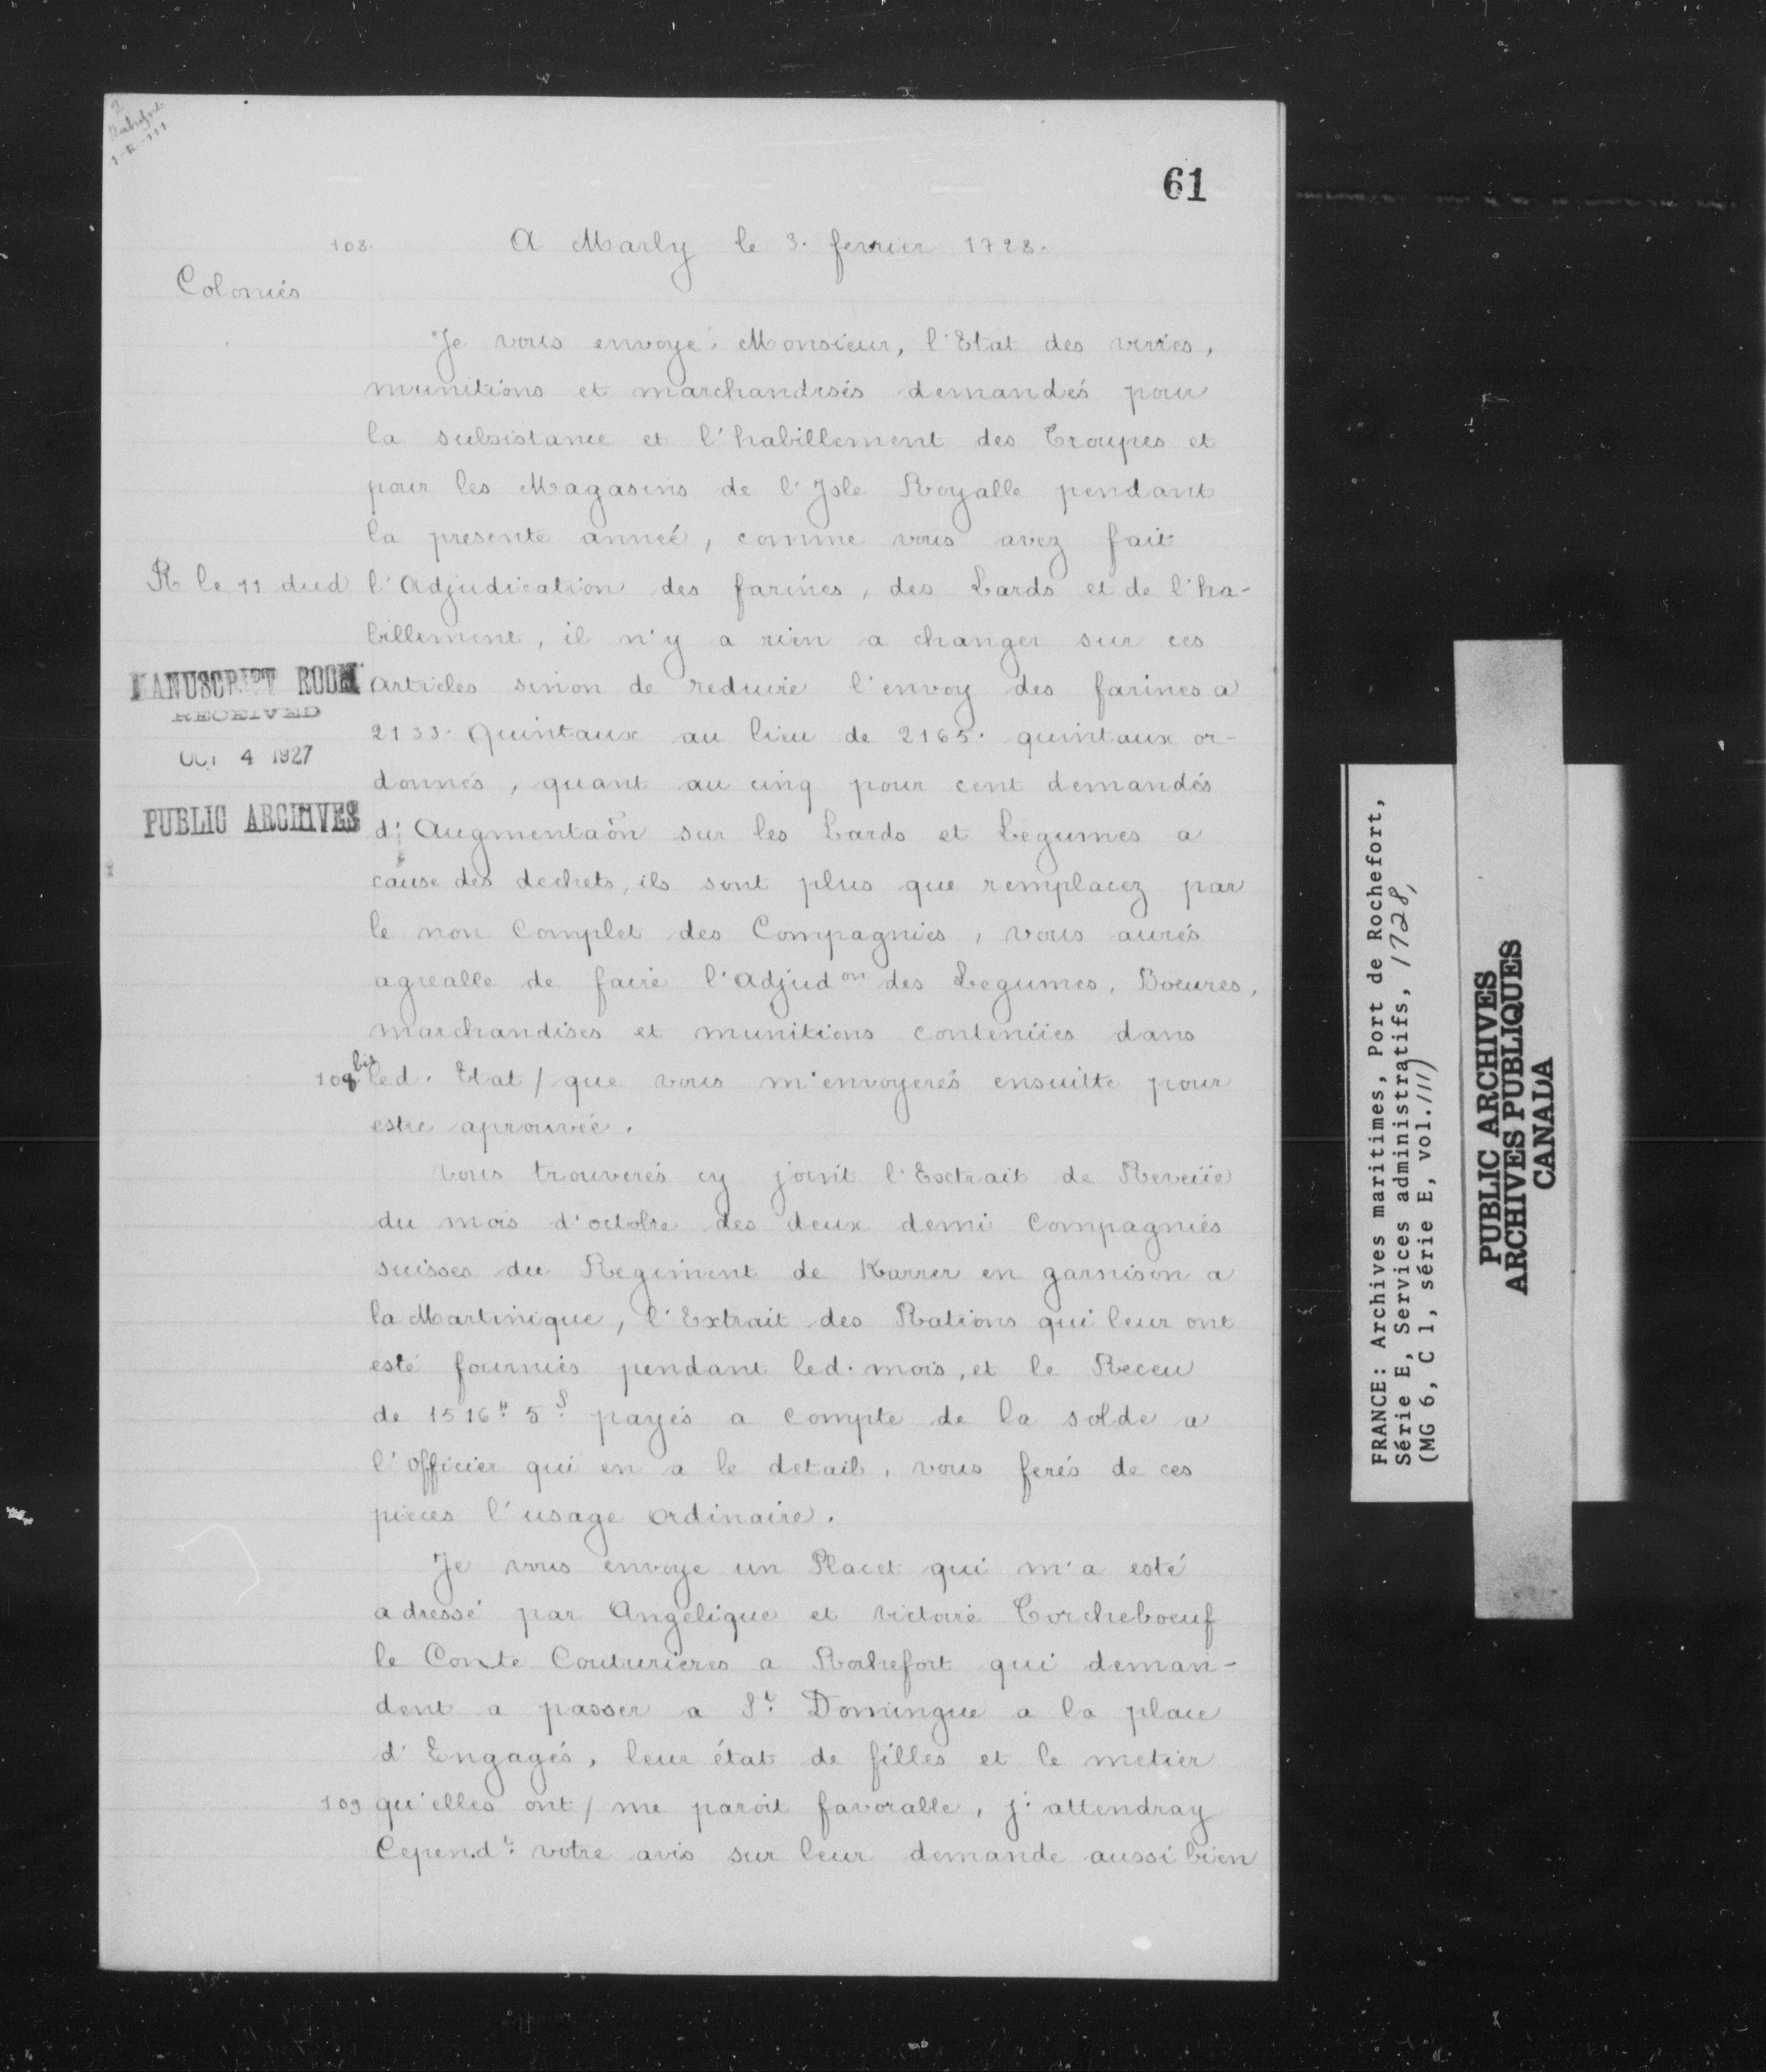 2
Rochefort
1-E-111
61
108.
A Marly le 3. fevrier 1728.
Colonies
Je vous envoye, Monsieur, l'Etat des vivres,
munitions et marchandises demandés pour
la subsistance et l'habillement des Troupes et
pour les Magasins de l'Isle Royalle pendant
la presente année, comme vous avez fait
R le 11 dud l'Adjudication des farines, des Lards et de l'ha-
billement, il n'y a rien a changer sur ces
MANUSCRIPT ROOM
articles sinon de reduire l'envoy des farines a
RECEIVED
2133. Quintaux au lieu de 2165. quintaux or-
OCT 4 1927
donnés, quant au cinq pour cent demandés
PUBLIC ARCHIVES
d'Augmentaõn sur les Lards et Legumes a
cause des dechets, ils sont plus que remplacez par
le non Complet des Compagnies, vous aurés
agrealle de faire l'adjudon des Legumes, Boeures,
marchandises et munitions contenües dans
108 bis led. Etat / que vous m'envoyerés ensuitte pour
estre aprouvée.
Vous trouverés cy joint l'Exctrait de Reveüe
du mois d'octobre des deux demi Compagnies
suisses du Regiment de Karrer en garnison a
la Martinique, l'Extrait des Rations qui leur ont
esté fournies pendant led. mois, et le Receu
de 1516# 5S payés a compte de la solde a
l'officier qui en a le detail, vous ferés de ces
pieces l'usage ordinaire.
Je vous envoye un Placet qui m'a esté
adressé par Angelique et Victoire Torcheboeuf
le Conte Couturieres a Rochefort qui deman-
dent a passer a St. Domingue a la place
d'Engagés, leur état de filles et le metier
109 qu'elles ont / me paroit favoralle, j'attendray
Cepend.t votre avis sur leur demande aussi bien
FRANCE: Archives maritimes, Port de Rochefort,
Série E, Services administratifs, 1728,
(MG 6, C 1, série E, vol.111)
PUBLIC ARCHIVES
ARCHIVES PUBLIQUES
CANADA